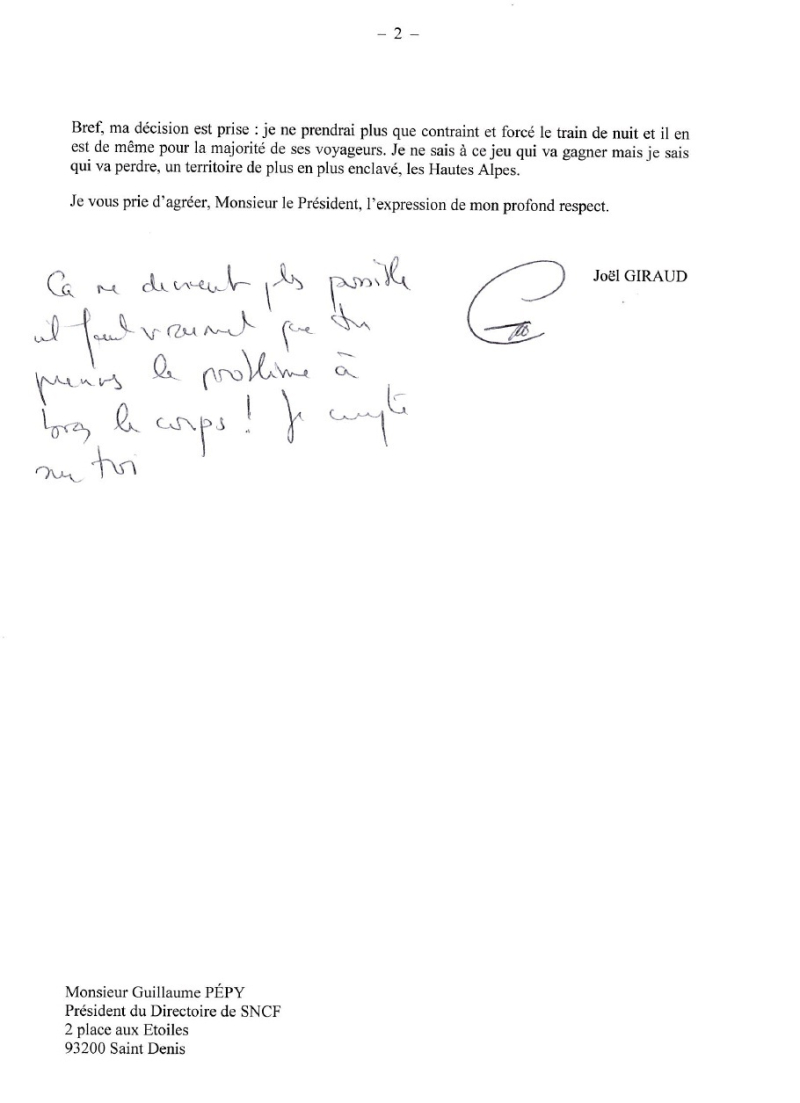 – 2 –
Bref, ma décision est prise : je ne prendrai plus que contraint et forcé le train de nuit et il en
est de même pour la majorité de ses voyageurs. Je ne sais à ce jeu qui va gagner mais je sais
qui va perdre, un territoire de plus en plus enclavé, les Hautes Alpes.
Je vous prie d’agréer, Monsieur le Président, l’expression de mon profond respect.
Joël GIRAUD
Ca ne devient pls possible
il faut vraiment que tu
prenes le problème à
bras le corps ! Je compte
sur toi
Monsieur Guillaume PÉPY
Président du Directoire de SNCF
2 place aux Etoiles
93200 Saint Denis